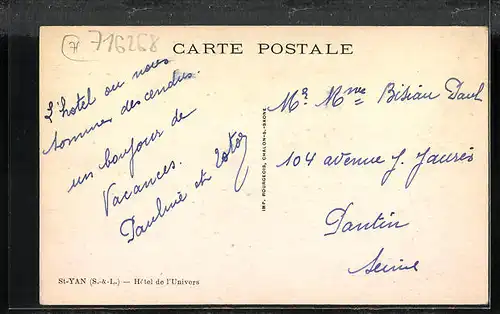 71
716268
CARTE POSTALE
L'hotel ou nous
sommes descendus.
un bonjour de
Vacances.
Pauline et Totor
Mr Mme Bisiau Paul
104 avenue J. Jaurès
Pantin
Seine
IMP. BOURGEOIS, CHALON-S.-SAONE
St-YAN (S.-&-L.) — Hôtel de l'Univers